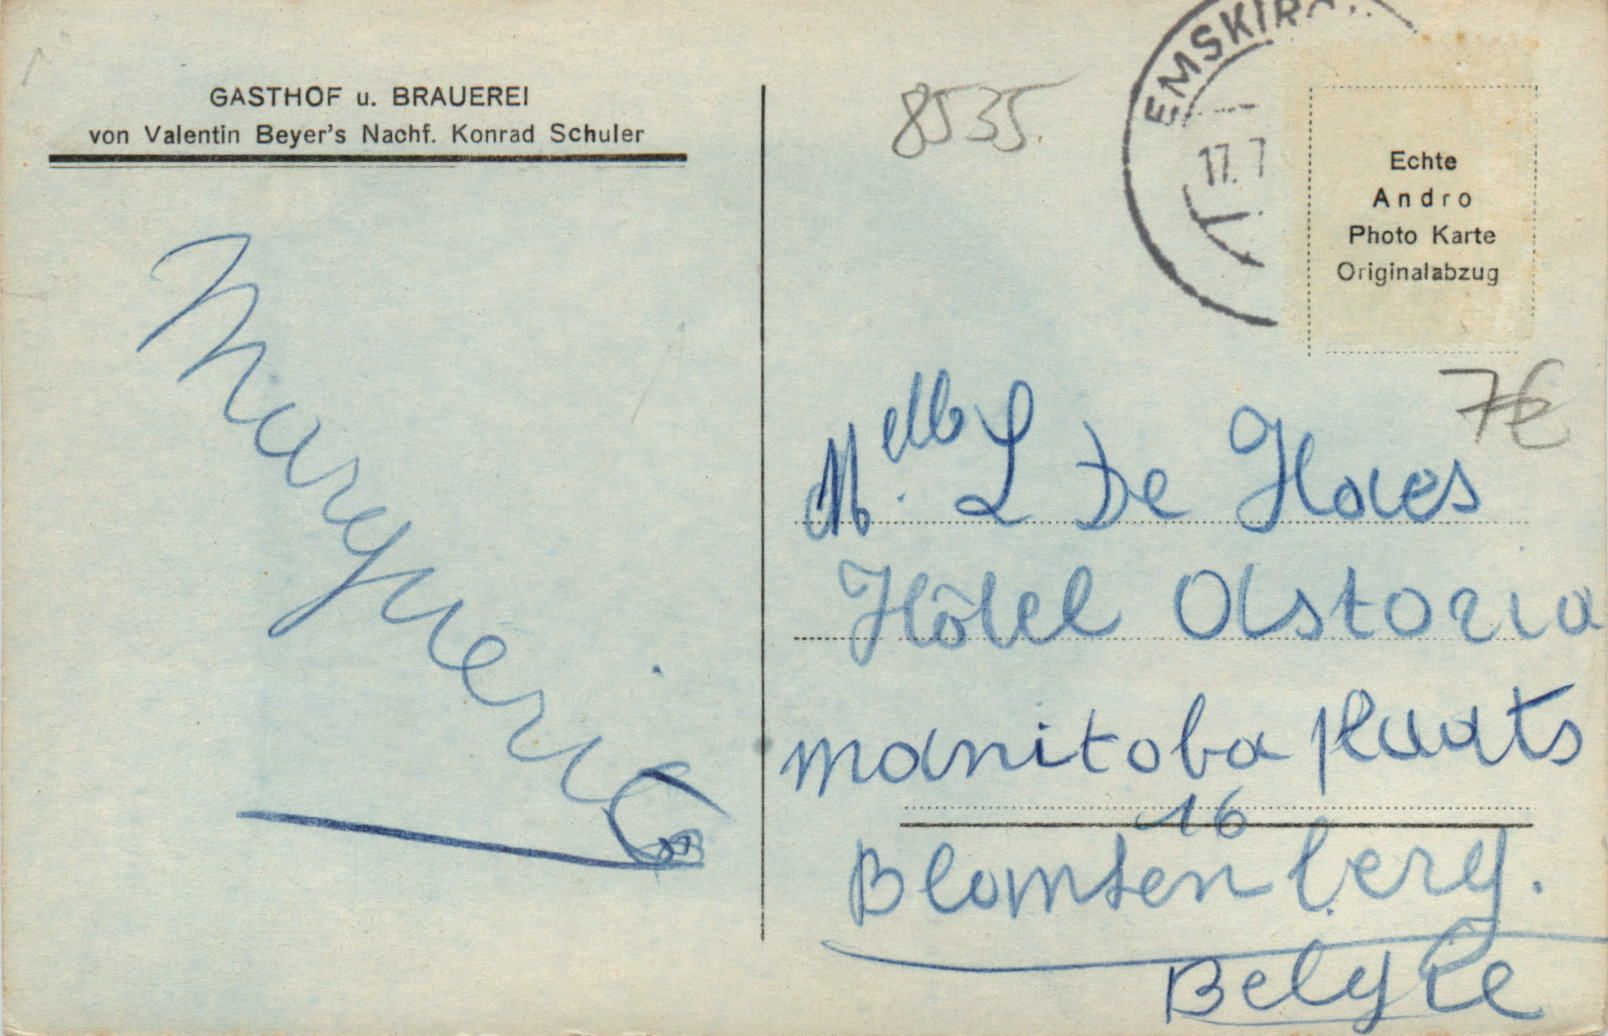 GASTHOF u. BRAUEREI
von Valentin Beyer's Nachf. Konrad Schuler
8535.
EMSKIR
17. 7
Echte
Andro
Photo Karte
Originalabzug
7€
Marguerite
Melle L De Haes
Hôtel Astoria
manitoba plaats
16
Blomsenberg.
Belgie